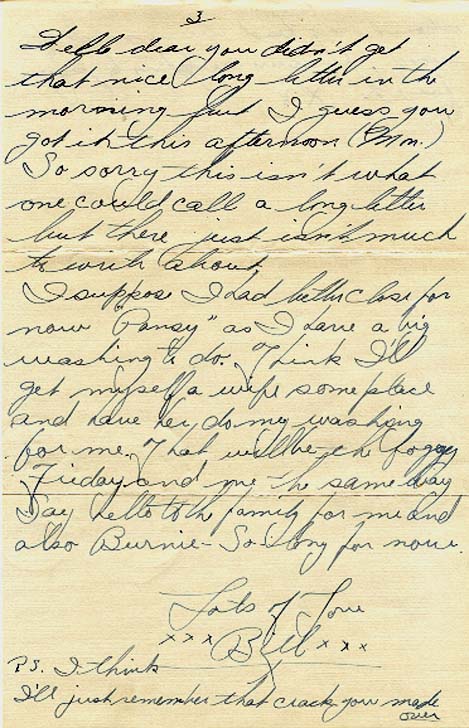 3
Hello dear you didn't get
that nice long letter in the
morning but I guess you
got it this afternoon (Mon.)
So sorry this isn't what
one could call a long letter
but there just isn't much
to write about.
I suppose I had better close for
now "Pansy" as I have a big
washing to do. Think I'll
get myself a wife some place
and have her do my washing
for me. That will be the foggy
Friday and me the same way
Say hello to the family for me and
also Burnie - So-long for now.
Lots of Love
xxx Bill xxx
P.S. I think
I'll just remember that crack you made
over